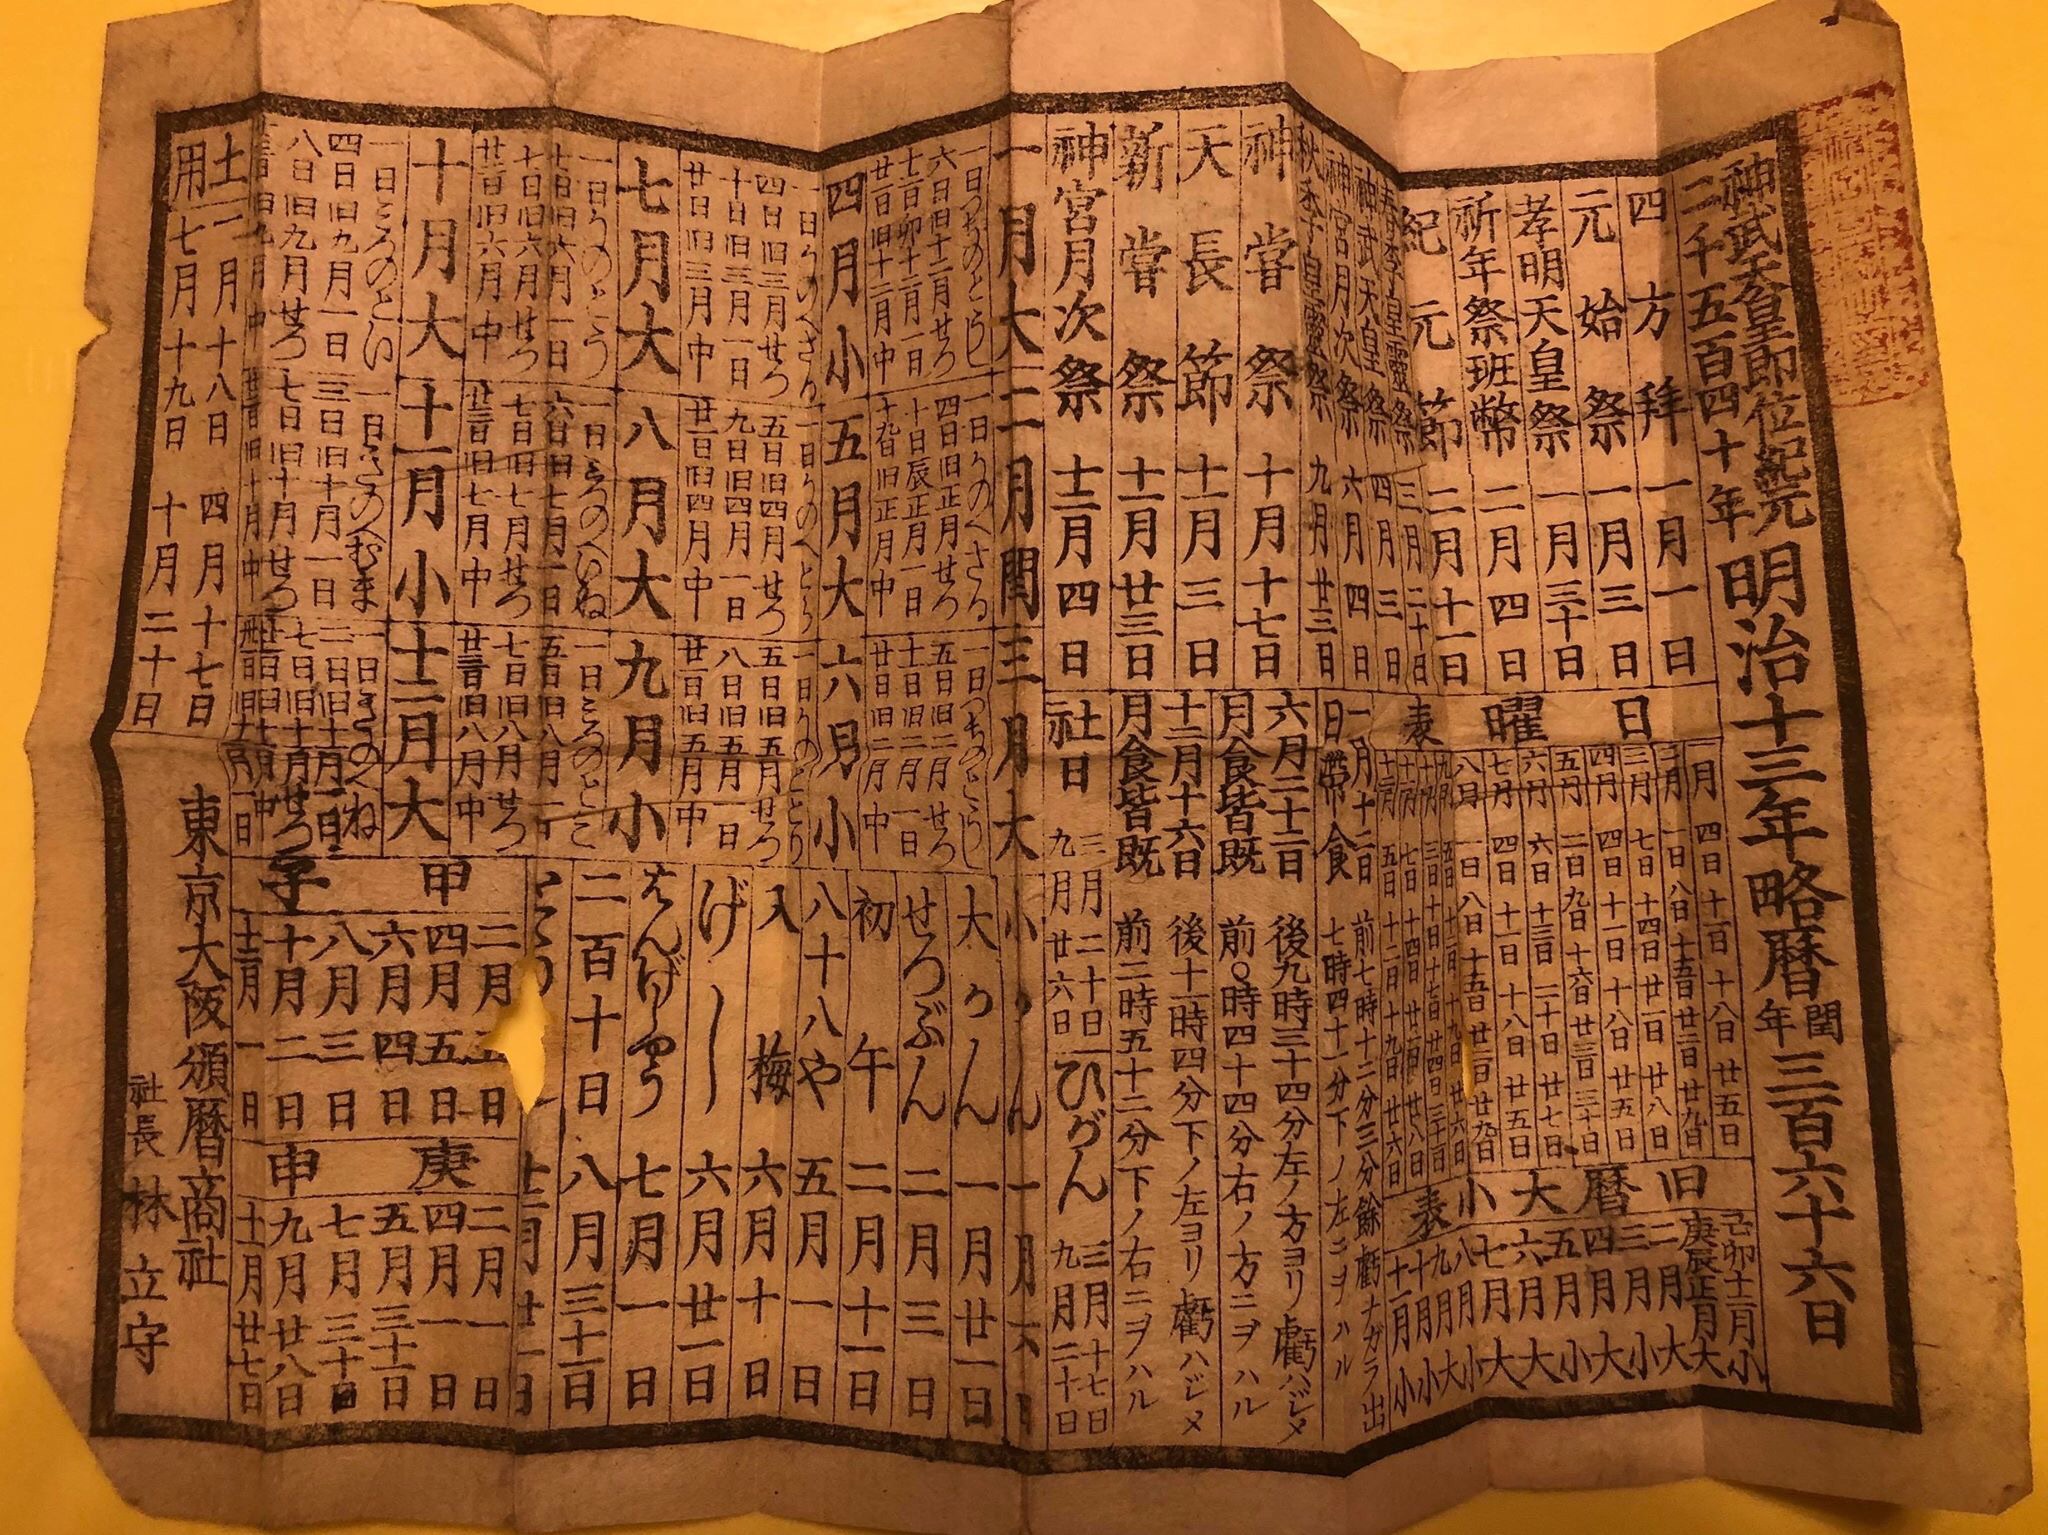 神武天皇即位紀元
二千五百四十年
明治十三年略暦
閏年
三百六十六日
四方拜 一月一日
元始祭 一月三日
孝明天皇祭 一月三十日
祈年祭班幣 二月四日
紀元節 二月十一日
春季皇霊祭 三月二十日
神武天皇祭 四月三日
神宮月次祭 六月四日
秋季皇霊祭 九月廿三日
神嘗祭 十月十七日
天長節 十一月三日
新嘗祭 十一月廿三日
神宮月次祭 十二月四日
日曜表
一月 四日 十一日 十八日 廿五日
二月 一日 八日 十五日 廿二日 廿九日
三月 七日 十四日 廿一日 廿八日
四月 四日 十一日 十八日 廿五日
五月 二日 九日 十六日 廿三日 三十日
六月 六日 十三日 二十日 廿七日
七月 四日 十一日 十八日 廿五日
八月 一日 八日 十五日 廿二日 廿九日
九月 五日 十二日 十九日 廿六日
十月 三日 十日 十七日 廿四日 三十一日
十一月 七日 十四日 廿一日 廿八日
十二月 五日 十二日 十九日 廿六日
旧暦大小表
己卯十二月小
庚辰正月大
二月大
三月小
四月大
五月小
六月大
七月大
八月小
九月大
十月小
十一月小
一月十二日 前七時十二分三分餘虧ナガラ出
日帶食 七時四十一分下ノ左ニヲハル
六月二十二日 後九時三十四分左ノ方ヨリ虧ハジメ
月食皆既 前〇時四十四分右ノ方ニヲハル
十二月十六日 後十一時四分下ノ左ヨリ虧ハジメ
月食皆既 前二時五十二分下ノ右ニヲハル
社日 三月二十日 九月廿六日
ひがん 三月十七日 九月二十日
一月大
一日つちのとうし
六日旧十二月せつ
十二日卯十二月一日
廿一日旧十二月中
二月閏
一日かのへさる
四日旧正月せつ
十日辰正月一日
十九日旧正月中
三月大
一日つちのとうし
五日旧二月せつ
十一日旧二月一日
廿日旧二月中
四月小
一日かのへさる
四日旧三月せつ
十日旧三月一日
廿日旧三月中
五月大
一日かのへとら
五日旧四月せつ
九日旧四月一日
廿一日旧四月中
六月小
一日かのととり
五日旧五月せつ
八日旧五月一日
廿一日旧五月中
七月大
一日かのとう
七日旧六月一日
七日旧六月せつ
廿二日旧六月中
八月大
一日みつのへいぬ
六日旧七月一日
七日旧七月せつ
廿三日旧七月中
九月小
五日旧八月一日
七日旧八月せつ
廿三日旧八月中
十月大
四日旧九月一日
八日旧九月せつ
廿三日旧九月中
十一月小
一日きのへむま
三日旧十月一日
七日旧十月せつ
廿二日旧十月中
十二月大
一日きのへね
二日旧十一月一日
七日旧十一月せつ
廿一日旧十一月中
小かん 一月六日
大かん 一月廿一日
せつぶん 二月三日
初午 二月十一日
八十八や 五月一日
入梅 六月十日
げし 六月廿一日
はんげしやう 七月一日
二百十日 八月三十一日
甲子
四月五日
六月四日
八月三日
十月二日
十二月一日
庚申
二月一日
四月一日
五月三十一日
七月三十日
九月廿八日
十一月廿七日
土用
一月十八日 四月十七日
七月十九日 十月二十日
東京大阪頒暦商社
社長 林立守